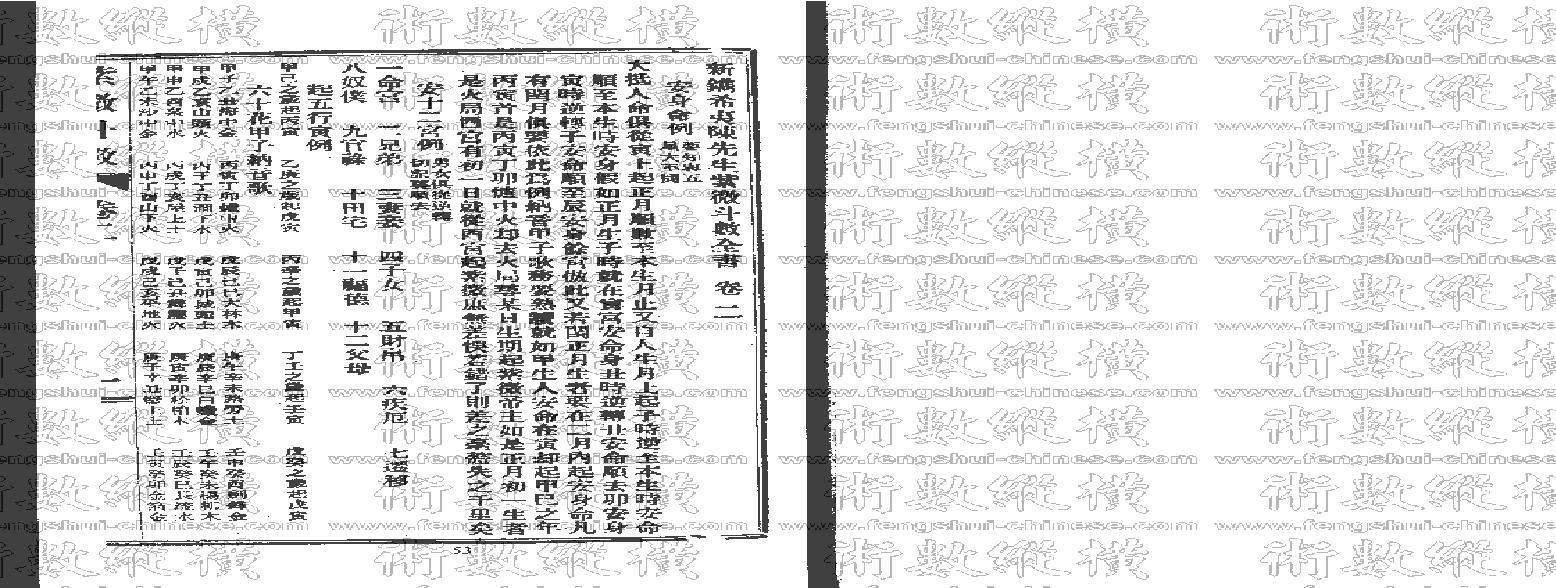 新鐫希夷陳先生紫微斗數全書 卷二
安身命例 要知表五星大同
大抵人命俱從寅上起正月順數至本生月止又自人生月上起子時逆至本生時安命
順至本生時安身假如正月生子時就在寅宮安命身丑時逆轉丑安命順去卯安身
寅時逆轉子安命順至辰安身餘宮倣此又若閏正月生者要在二月內起安身命凡
有閏月俱要依此為例納音甲子歌務要熟讀就如甲生人安命在寅却起甲己之年
丙寅首是丙寅丁卯爐中火却去火局尋某日生期起紫微帝主如是正月初一生者
是火局酉宮有初一日就從酉宮起紫微庶無差悞若錯了則差之毫釐失之千里矣
安十二宮例 男女俱從逆轉 切記莫順去
一命宮 二兄弟 三妻妾 四子女 五財帛 六疾厄 七遷移
八奴僕 九官祿 十田宅 十一福德 十二父母
起五行寅例
甲己之歲起丙寅 乙庚之歲起戊寅 丙辛之歲起庚寅 丁壬之歲起壬寅 戊癸之歲起甲寅
六十花甲子納音歌
甲子乙丑海中金 丙寅丁卯爐中火 戊辰己巳大林木 庚午辛未路旁土 壬申癸酉劍鋒金
甲戌乙亥山頭火 丙子丁丑澗下水 戊寅己卯城頭土 庚辰辛巳白蠟金 壬午癸未楊柳木
甲申乙酉泉中水 丙戌丁亥屋上土 戊子己丑霹靂火 庚寅辛卯松柏木 壬辰癸巳長流水
甲午乙未沙中金 丙申丁酉山下火 戊戌己亥平地木 庚子辛丑壁上土 壬寅癸卯金箔金
53
術數縱橫
www.fengshui-chinese.com